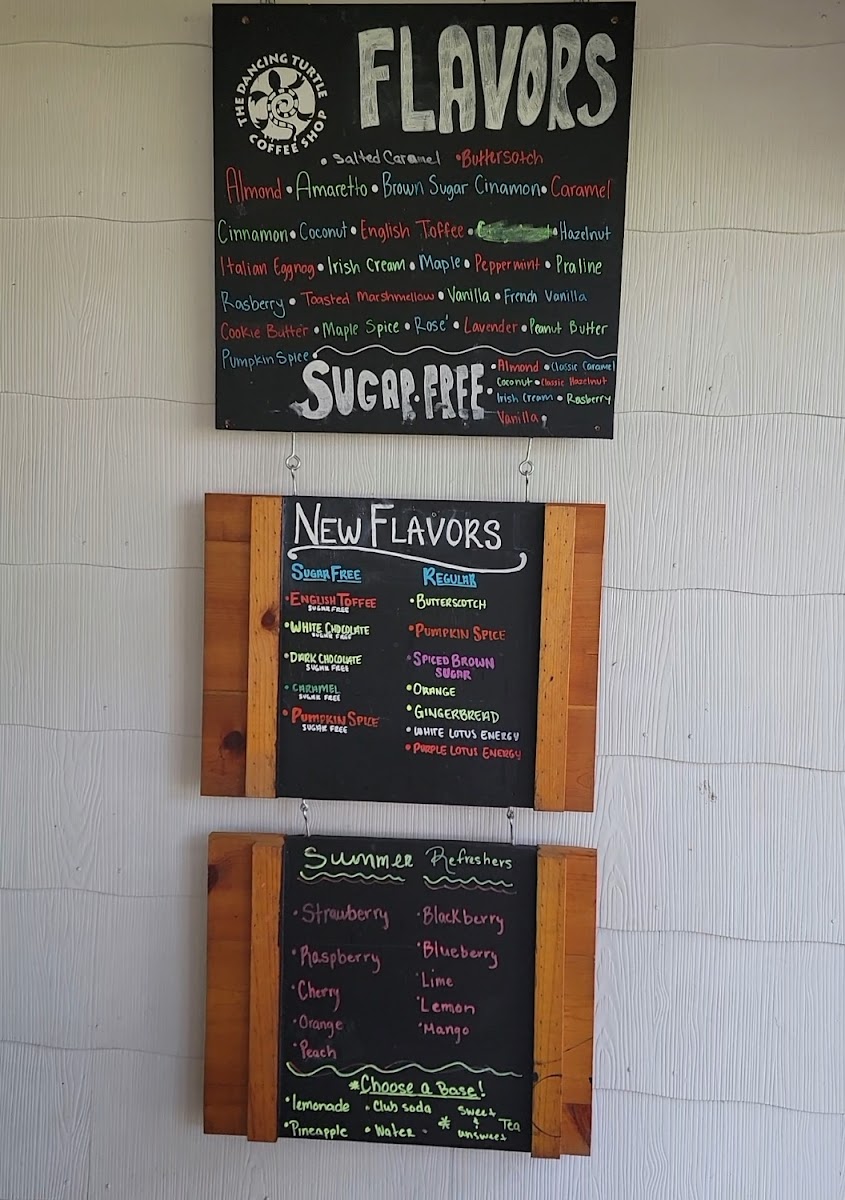 THE DANCING TURTLE
COFFEE SHOP
FLAVORS
• Salted Caramel • Buttersotch
Almond • Amaretto • Brown Sugar Cinamon • Caramel
Cinnamon • Coconut • English Toffee • • Hazelnut
Italian Eggnog • Irish Cream • Maple • Peppermint • Praline
Rasberry • Toasted Marshmellow • Vanilla • French Vanilla
Cookie Butter • Maple Spice • Rose' • Lavender • Peanut Butter
Pumpkin Spice •
SUGAR-FREE
• Almond • Classic Caramel
Coconut • Classic Hazelnut
• Irish Cream • Rasberry
Vanilla •
NEW FLAVORS
SUGAR FREE
• ENGLISH TOFFEE
SUGAR FREE
• WHITE CHOCOLATE
SUGAR FREE
• DARK CHOCOLATE
SUGAR FREE
• CARAMEL
SUGAR FREE
• PUMPKIN SPICE
SUGAR FREE
REGULAR
• BUTTERSCOTCH
• PUMPKIN SPICE
• SPICED BROWN
SUGAR
• ORANGE
• GINGERBREAD
• WHITE LOTUS ENERGY
• PURPLE LOTUS ENERGY
Summer Refreshers
• Strawberry
• Raspberry
• Cherry
• Orange
• Peach
• Blackberry
• Blueberry
• Lime
• Lemon
• Mango
*Choose a Base!
• lemonade • Club soda
• Pineapple • Water •
* sweet & unsweet Tea